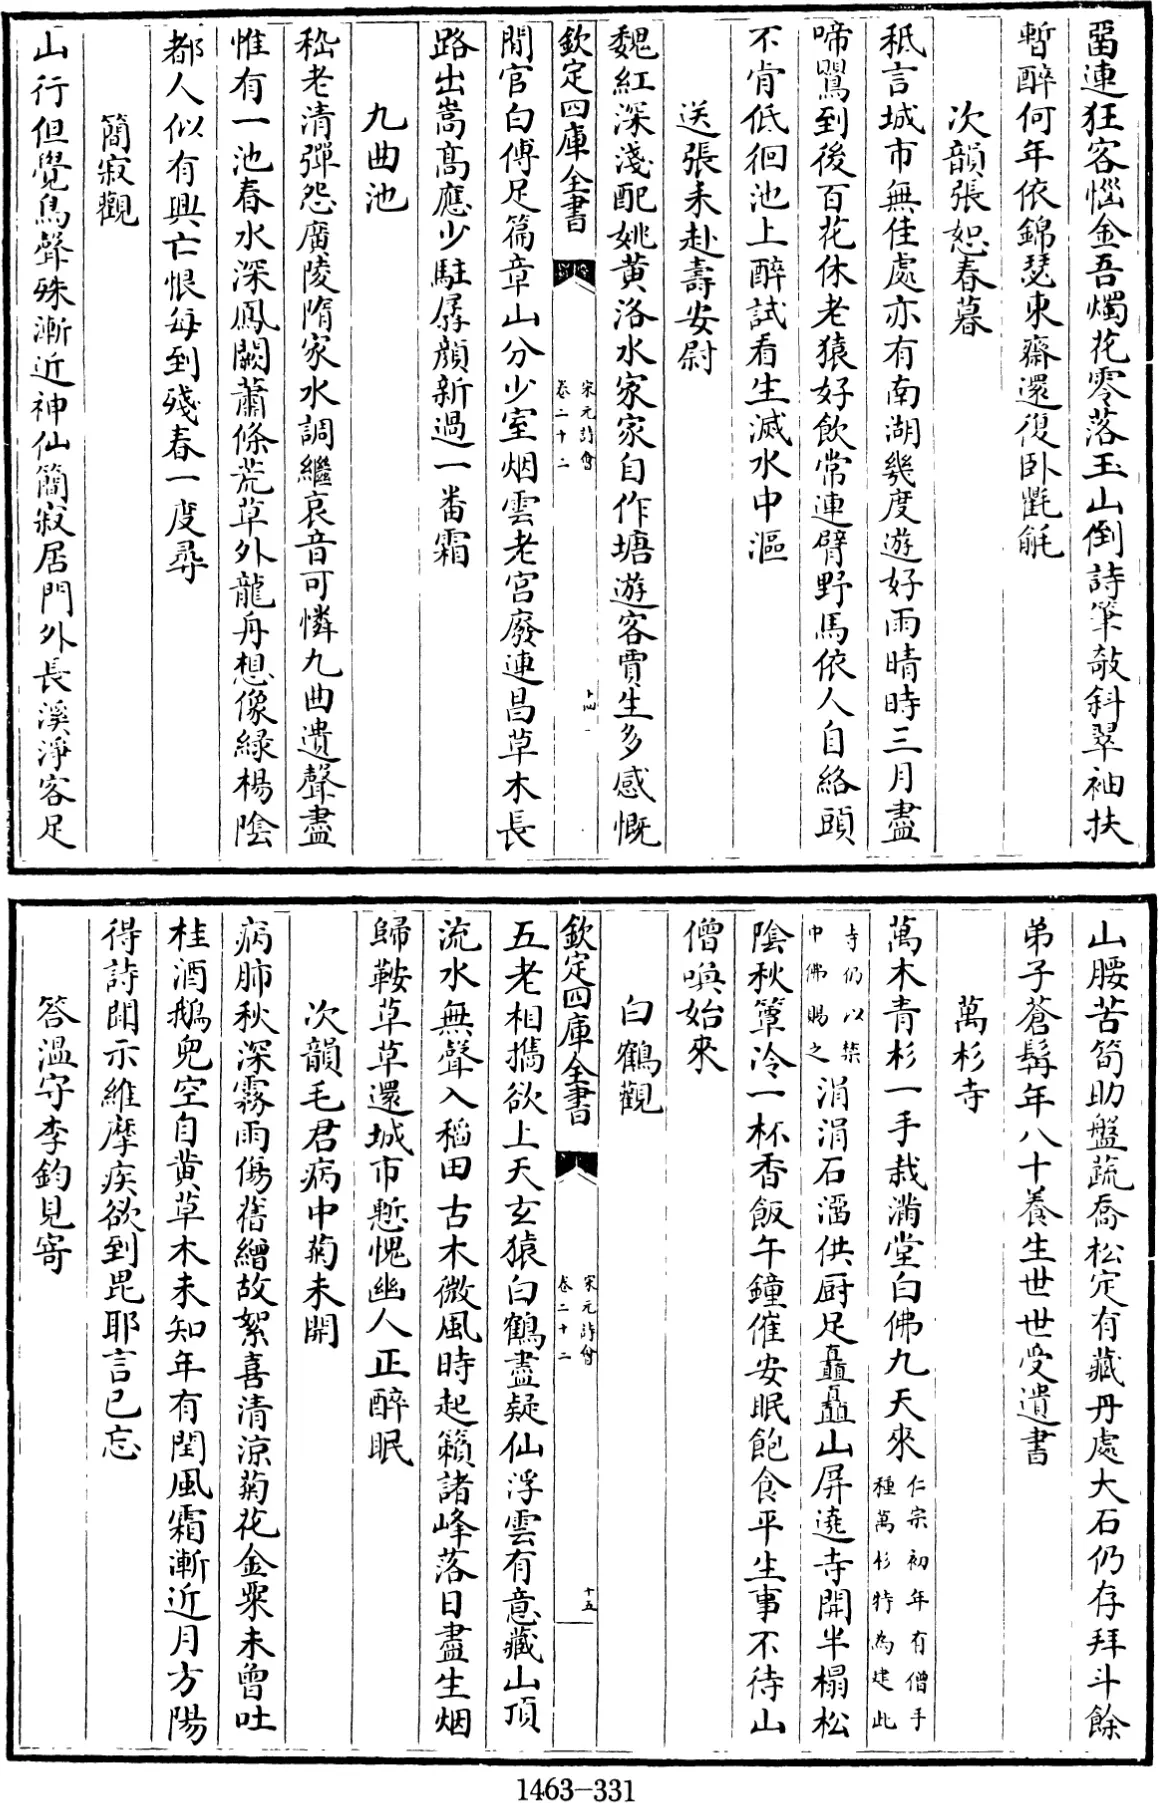 留連狂客惱金吾燭花零落玉山倒詩筆敧斜翠袖扶
暫醉何年依錦瑟東齋還復卧氍毹
次韻張恕春暮
秖言城市無佳處亦有南湖幾度遊好雨晴時三月盡
啼鶯到後百花休老猿好飲常連臂野馬依人自絡頭
不肯低徊池上醉試看生滅水中漚
送張耒赴壽安尉
魏紅深淺配姚黃洛水家家自作塘遊客賈生多感慨
欽定四庫全書
宋元詩會
卷二十二
十四
閒官白傅足篇章山分少室烟雲老宮廢連昌草木長
路出嵩高應少駐孱顔新過一番霜
九曲池
嵇老清彈怨廣陵隋家水調繼哀音可憐九曲遺聲盡
惟有一池春水深鳳闕蕭條荒草外龍舟想像緑楊陰
都人似有興亡恨每到殘春一度尋
簡寂觀
山行但覺鳥聲殊漸近神仙簡寂居門外長溪淨客足
山腰苦筍助盤蔬喬松定有藏丹處大石仍存拜斗餘
弟子蒼髯年八十養生世世受遺書
萬杉寺
萬木青杉一手栽滿堂白佛九天來仁宗初年有僧手
種萬杉特為建此
寺仍以禁
中佛賜之涓涓石溜供厨足矗矗山屏遶寺開半榻松
陰秋簟冷一杯香飯午鐘催安眠飽食平生事不待山
僧喚始來
白鶴觀
欽定四庫全書
宋元詩會
卷二十二
十五
五老相攜欲上天玄猿白鶴盡疑仙浮雲有意藏山頂
流水無聲入稻田古木微風時起籟諸峰落日盡生烟
歸鞍草草還城市慙愧幽人正醉眠
次韻毛君病中菊未開
病肺秋深霧雨傷舊繒故絮喜清涼菊花金粟未曾吐
桂酒鵝兒空自黃草木未知年有閏風霜漸近月方陽
得詩聞示維摩疾欲到毘耶言已忘
答溫守李鈞見寄
1463-331